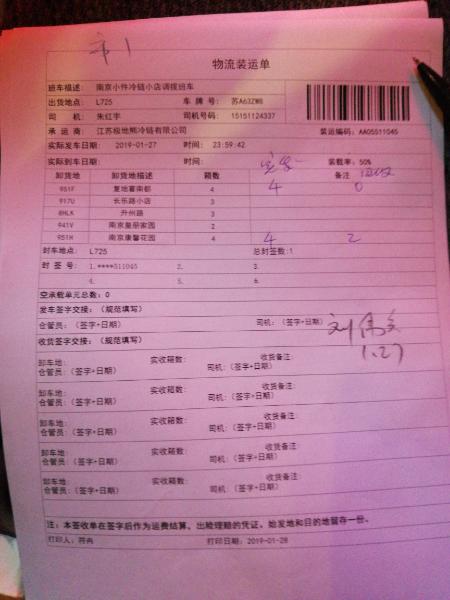 市1
物流装运单
班车描述: 南京小件冷链小店调拨班车
出货地点: L725 车 牌 号: 苏A63ZW8
司 机: 朱红宇 司机号码: 15151124337
承 运 商: 江苏极地熊冷链有限公司 装运编码: AA05511045
实际发车日期: 2019-01-27 时间: 23:59:42
实际到车日期: 时间: 装载率: 50%
卸货地 卸货地描述 箱数 备注
951F 复地宴南都 4 4 0
917U 长乐路小店 3
8HLK 升州路 3
941V 南京皇册家园 2
951H 南京康馨花园 4 4 2
封车地点: L725 总封签数:1
封 签 号: 1.****511045 2. 3.
4. 5. 6.
空承载单元总数: 0
发车签字交接: (规范填写)
仓管员: (签字+日期) 司机: (签字+日期) 1.27
收货签字交接: (规范填写)
卸车地: 实收箱数: 收货备注:
仓管员: (签字+日期) 司机: (签字+日期)
卸车地: 实收箱数: 收货备注:
仓管员: (签字+日期) 司机: (签字+日期)
卸车地: 实收箱数: 收货备注:
仓管员: (签字+日期) 司机: (签字+日期)
卸车地: 实收箱数: 收货备注:
仓管员: (签字+日期) 司机: (签字+日期)
卸车地: 实收箱数: 收货备注:
仓管员: (签字+日期) 司机: (签字+日期)
注: 本签收单在签字后作为运费结算、出险理赔的凭证、始发地和目的地留存一份。
打印人: 符冉 打印日期: 2019-01-28